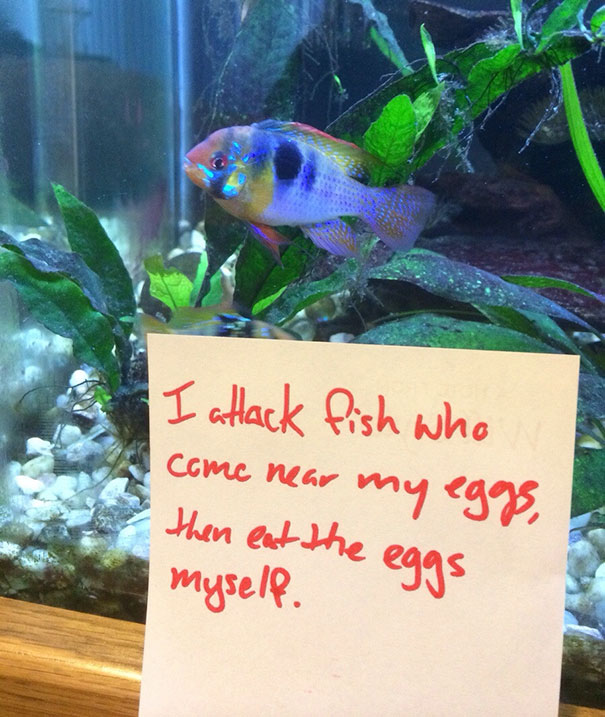 I attack fish who
come near my eggs,
then eat the eggs
myself.